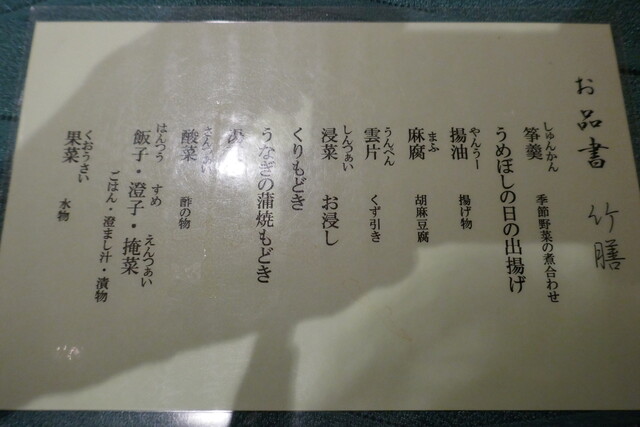 お品書 竹膳
しゅんかん
筝羹 季節野菜の煮合わせ
うめぼしの日の出揚げ
やんうー
揚油 揚げ物
まふ
麻腐 胡麻豆腐
うんぺん
雲片 くず引き
しんつぁい
浸菜 お浸し
くりもどき
うなぎの蒲焼もどき
さんつぁい
酸菜 酢の物
はんつう すめ えんつぁい
飯子・澄子・掩菜
ごはん・澄まし汁・漬物
くおうさい
果菜 水物